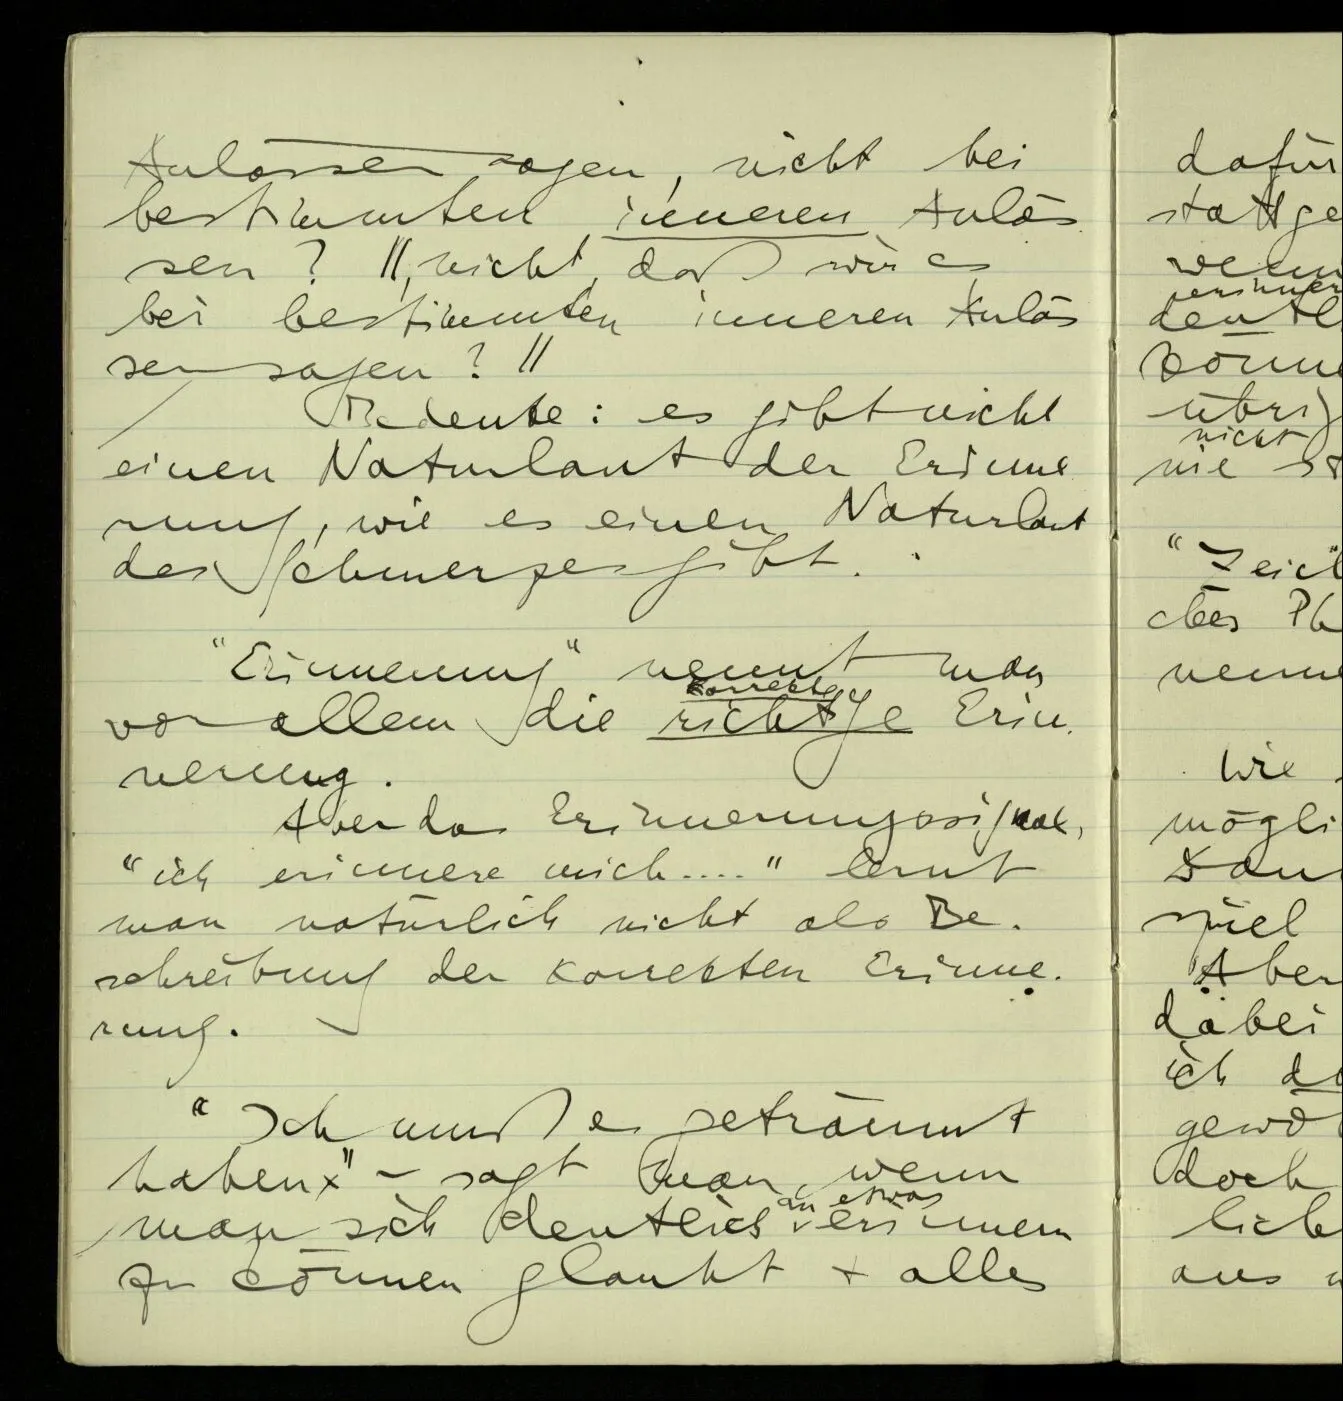 Anlässen sagen, nicht bei
bestimmten inneren Anläs
sen? \\, nicht, daß wir es
bei bestimmten inneren Anläs
sen sagen? \\
/ Bedenke: es gibt nicht
einen Naturlaut der Erinne
rung, wie es einen Naturlaut
des Schmerzes gibt.
"Erinnerung" nennt man
korrekte
vor allem die richtige Erin
nerung.
Aber das Erinnerungssignal,
"ich erinnere mich...." lernt
man natürlich nicht als Be-
schreibung der korrekten Erinne-
rung.
"Ich muß es geträumt
haben" – sagt man, wenn
an etwas
man sich deutlich erinnern
zu können glaubt + alles
dafür
stattge
wenn
erinner
deutl
könne
übrig
nicht
nie st
"Zeich
ches Ph
nenne
Wie
mögli
Dann
spiel
Aber
dabei
ich da
gewö
doch
lich
aus